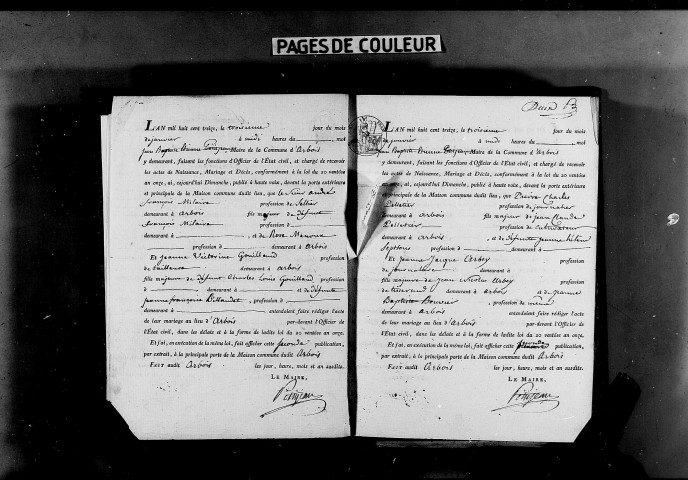 PAGES DE COULEUR
L'AN mil huit cent treize, le troisième jour du mois
de janvier à midi heures du , moi
Jean Baptiste Étienne Maire de la Commune d'Arbois
y demeurant, faisant les fonctions d'Officier de l'État civil, et chargé de recevoir
les actes de Naissance, Mariage et Décès, conformément à la loi du 20 ventôse
an onze, ai, cejourd'hui Dimanche, publié à haute voix, devant la porte extérieure
et principale de la Maison commune dudit lieu, que le Sieur André
François profession de Sellier
demeurant à Arbois fils majeur de défunt
François et de Rose
demeurant à
profession d demeurant à Arbois
Et Jeanne Victorine Gouillaud profession
de demeurant à Arbois
fille majeure de défunt Charles Louis Gouillaud profession
d demeurant à et de défunte
Jeanne Françoise profession d
demeurant à entendaient faire rédiger l'acte
de leur mariage au lieu d'Arbois par-devant l'Officier de
l'État civil, dans les délais et à la forme de ladite loi du 20 ventôse an onze.
Et j'ai, en exécution de la même loi, fait afficher cette seconde publication,
par extrait, à la principale porte de la Maison commune dudit Arbois
FAIT audit Arbois les jour, heure, mois et an susdits.
LE MAIRE,
Deux
L'AN mil huit cent treize, le troisième jour du mois
de janvier à midi heures du , moi
Jean Baptiste Étienne Maire de la Commune d'Arbois
y demeurant, faisant les fonctions d'Officier de l'État civil, et chargé de recevoir
les actes de Naissance, Mariage et Décès, conformément à la loi du 20 ventôse
an onze, ai, cejourd'hui Dimanche, publié à haute voix, devant la porte extérieure
et principale de la Maison commune dudit lieu, que Pierre Charles
Pelletier profession de journalier
demeurant à Arbois fils majeur de Jean Claude
Pelletier profession de cultivateur
demeurant à Arbois , et de défunte Jeanne
profession d demeurant à
Et Jeanne Jacque Arbey profession
de journalière demeurant à Arbois
fille majeure de Jean Nicolas Arbey profession
de tisserand demeurant à Arbois et de Jeanne
Baptiste Bouvier , profession de même
demeurant à Arbois entendaient faire rédiger l'acte
de leur mariage au lieu d'Arbois par-devant l'Officier de
l'État civil, dans les délais et à la forme de ladite loi du 20 ventôse an onze.
Et j'ai, en exécution de la même loi, fait afficher cette publication,
par extrait, à la principale porte de la Maison commune dudit Arbois
FAIT audit Arbois les jour, heure, mois et an susdits.
LE MAIRE,